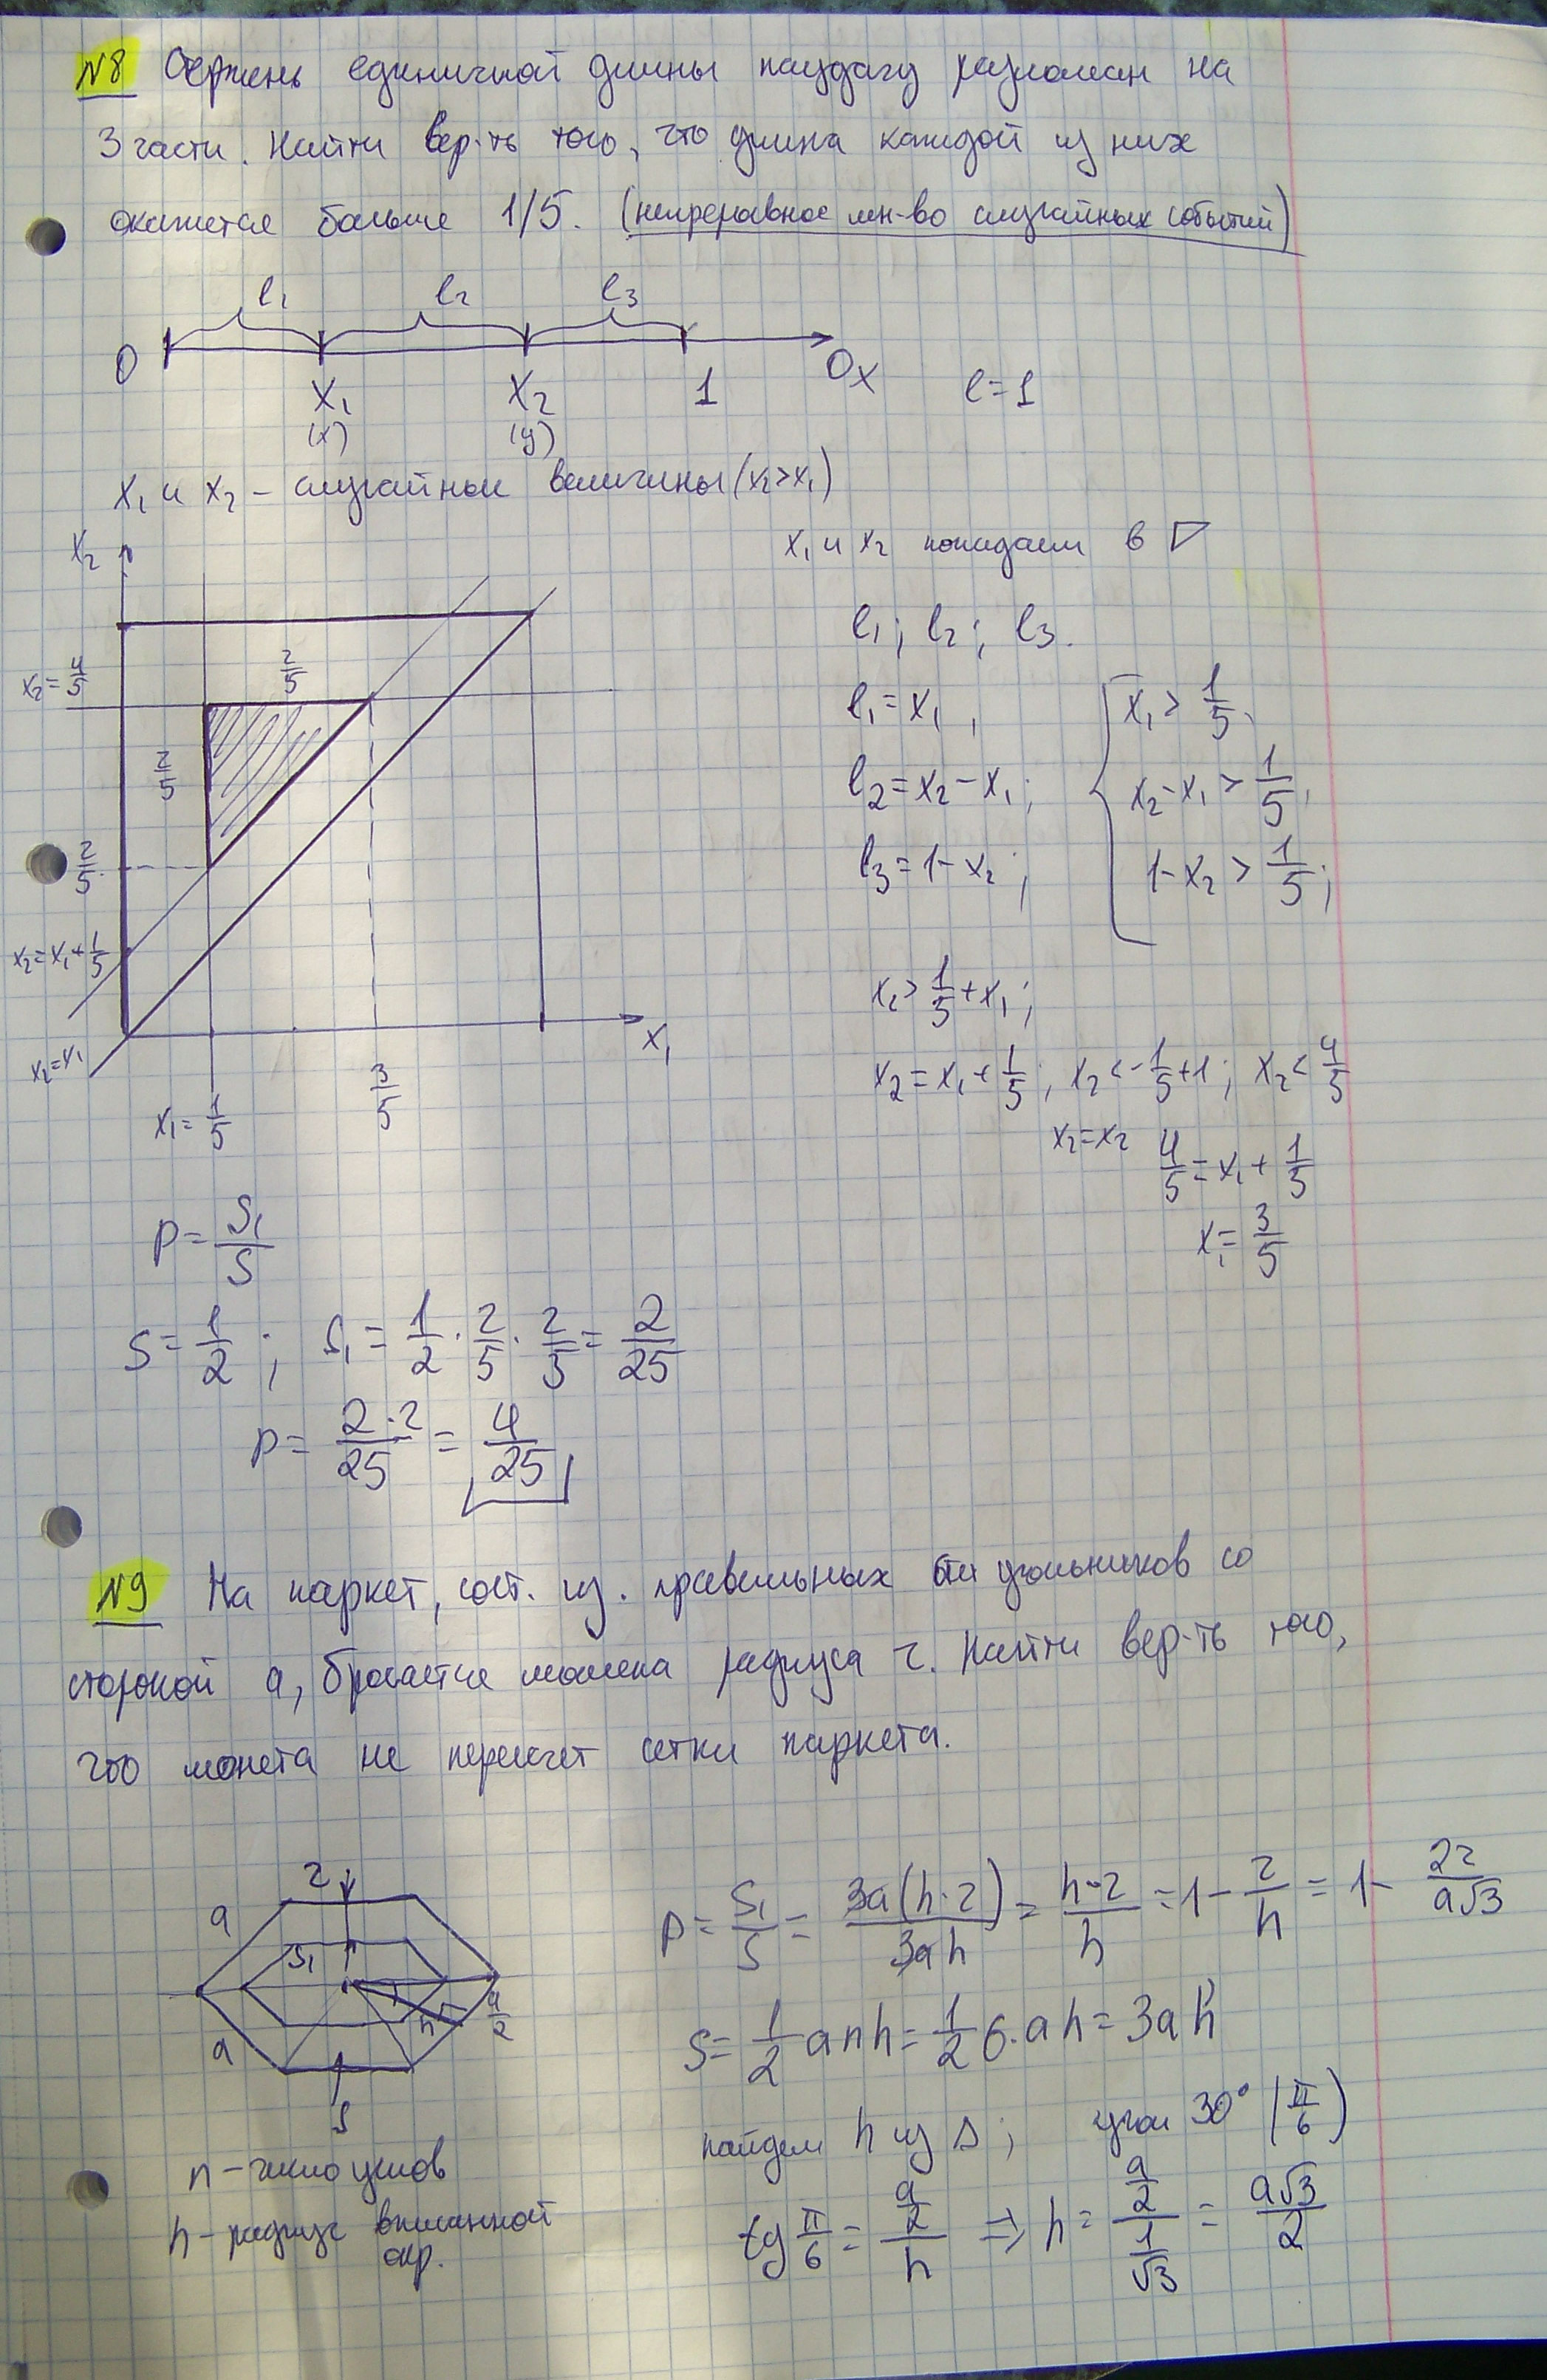 №8 Стержень единичной длины наудачу разломан на
3 части. Найти вер-ть того, что длина каждой из них
окажется больше 1/5. (непрерывное мн-во случайных событий)
l₁ l₂ l₃
0 x₁ x₂ 1 Ox l=1
(x) (y)
x₁ и x₂ – случайные величины (x₂>x₁)
x₁ и x₂ попадаем в ▽
x₂
x₂=4/5
2/5
2/5
2/5
x₂=x₁+1/5
x₂=x₁
x₁=1/5
3/5
x₁
l₁; l₂; l₃.
l₁=x₁, { x₁>1/5,
l₂=x₂-x₁; x₂-x₁>1/5,
l₃=1-x₂; 1-x₂>1/5;
x₂>1/5+x₁;
x₂=x₁+1/5; x₂<-1/5+1; x₂<4/5
x₂=x₂ 4/5=x₁+1/5
x₁=3/5
p=S₁/S
S=1/2; S₁=1/2·2/5·2/5=2/25
p=2·2/25=4/25
№9 На паркет, сост. из. правильных 6ти угольников со
стороной a, бросается монета радиуса r. Найти вер-ть того,
что монета не пересечет сетки паркета.
r
a
S₁
a
h
a/2
S
n – число углов
h – радиус вписанной
окр.
p=S₁/S=3a(h-r)/3ah=h-r/h=1-r/h=1-2r/a√3
S=1/2 anh=1/2 6·ah=3ah
найдем h из Δ; угол 30° (π/6)
tg π/6=(a/2)/h ⇒ h=(a/2)/(1/√3)=a√3/2